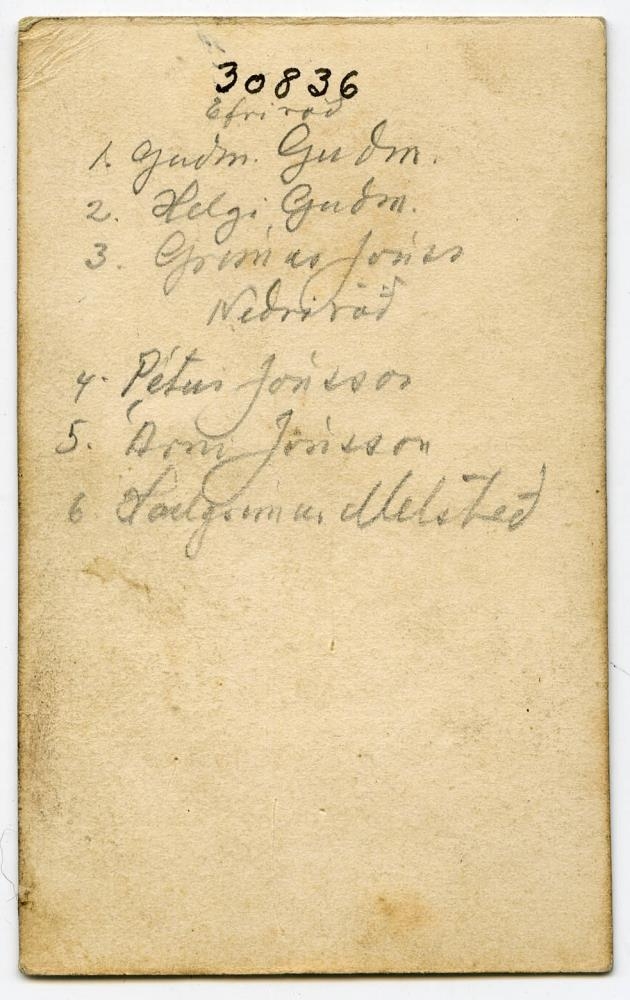 30836
Efri röð
1. Guðm. Guðm.
2. Helgi Guðm.
3. Grímur Jónss
Neðri röð
4. Pétur Jónsson
5. Árni Jónsson
6 Hallgrímur Melsteð